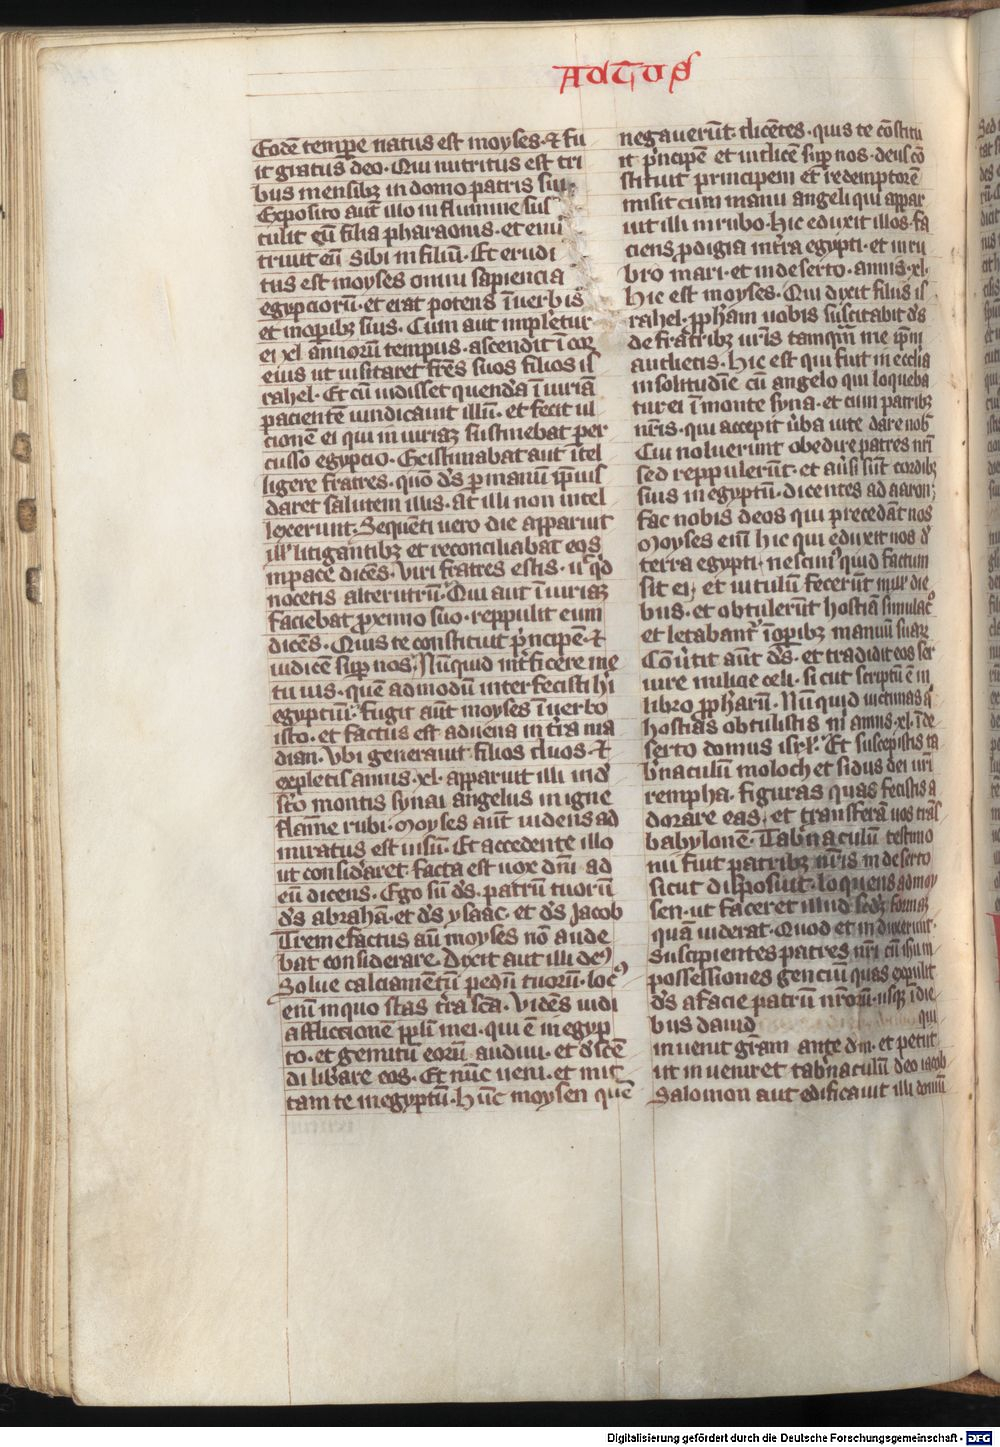 ACTUS
Eodē tempe natus est moyses · ⁊ fu
it gratus deo · Qui nutritus est tri
bus mensibꝫ in domo patris sui
Exposito aut̄ illo in flumine sus
tulit eū filia pharaonis · et enu
triuit eū sibi in filiū · Et erudi
tus est moyses omni sapiencia
egypciorū · et erat potens ī uerbis
et in opibꝫ suis · Cum aut̄ impletur
ei xl annorū tempus · ascendit ī cor
eius ut uisitaret fr̄es suos filios is
rahel · Et cū uidisset quendā ī iuriā
pacientē uindicauit illū · et fecit ul
cionē ei qui in iuriaꝫ sustinebat per
cusso egypcio · Eeistimabat aut̄ ītel
ligere fratres · quō ds̄ p manū ipīus
daret salutem illis · at illi non intel
lexerunt · Sequenti uero die apparuit
ill' litigantibꝫ et reconciliabat eos
in pace dicēs · Viri fratres estis · ut qd
nocetis alterutrū · Qui aut̄ īiuriaꝫ
faciebat proximo suo · reppulit eum
dicēs · Quis te constituit pncipē · ⁊
iudicē sup nos · Nūquid int'ficere me
tu uis · quē ad modū interfecisti hi
egyptiū · fugit aūt moyses ī uerbo
isto · et factus est aduena in t'ra ma
dian · Vbi generauit filios duos · ⁊
expletis annis · xl · apparuit illi in d'
s'to montis synai angelus in igne
flāme rubi · Moyses aūt uidens ad
miratus est uisū · Et accedente illo
ut cons'idaret facta est uox dn̄i ad
eū dicens · Ego sū ds̄ · patrū tuorū
ds̄ abrahā · et ds̄ ysaac · et ds̄ Jacob
Tremefactus aū moyses nō aude
bat considerare · Dixit aut illi de9
Solue calciamentū pedū tuorū · loc9
enī in quo stas t'ra scā · Vidēs uidi
afflictionē ppl'i mei · qui ē in egyp
to · et gemitū eorū audiui · et d'scē
di lib'are eos · Et nūc ueni · et mit
tam te in egyptū · hūc moysen quē
negauerūt · dicētes · quis te cōstitu
it pncipē et iudicē sup nos · deus cō
stituit principem et redemptorē
misit cum manu angeli qui appar
uit illi in rubo · hic eduxit illos · fa
ciens pdigia in t'ra egypti · et in ru
bro mari · et in deserto · annis · xl ·
hic est moyses · Qui dixit filiis is
rahel · pph'am uobis suscitabit ds̄
de fratribꝫ ur̄is tamqm̄ me ipm̄
audietis · hic est qui fuit in eccl'ia
in solitudīe cū angelo qui loqueba
tur ei ī monte syna · et cum patribꝫ
nr̄is · qui accepit u'ba uite dare nob'
Cui noluerunt obedire patres nr̄i
sed reppulerūt · et ausi sūt cordibꝫ
suis in egyptū · dicentes ad aaron ·
fac nobis deos qui precedāt nos
Moyses enī hic qui eduxit nos d'
terra egypti · nescim9 quid factum
sit ei · et uitulū fecerūt in ill' die
bus · et obtulerūt hostiā simulac°
et letabant' ī opibꝫ manuū suaꝝ
Cōu'tit aūt ds̄ · et tradidit eos ser
uire milicie celi · sicut scriptū ē in
libro pph'arū · Nūquid uictimas a'
hostias obtulistis m' annis · xl · ī de
serto domus isrl' · Et suscepistis ta
b'naculū moloch et sidus dei ur̄i
rempha · figuras quas fecistis a
dorare eas · et transferā uos trās
babylonē · Tab'naculū testimo
nii fuit patribꝫ nr̄is in deserto
sicut disposuit · loquens ad moy
sen · ut faceret illud scdꝫ formaꝫ
quā uiderat · Quod et induxerunt ·
suscipientes patres nr̄i cū ihū in
possessiones genciū quas expulit
ds̄ a facie patrū nr̄orū · usqꝫ ī die
bus dauid qui
inuenit gr̄am ante dm̄ · et petiit
ut inueniret tab'naculū deo iacob
Salomon aut edificauit illi domū
Digitalisierung gefördert durch die Deutsche Forschungsgemeinschaft - DFG